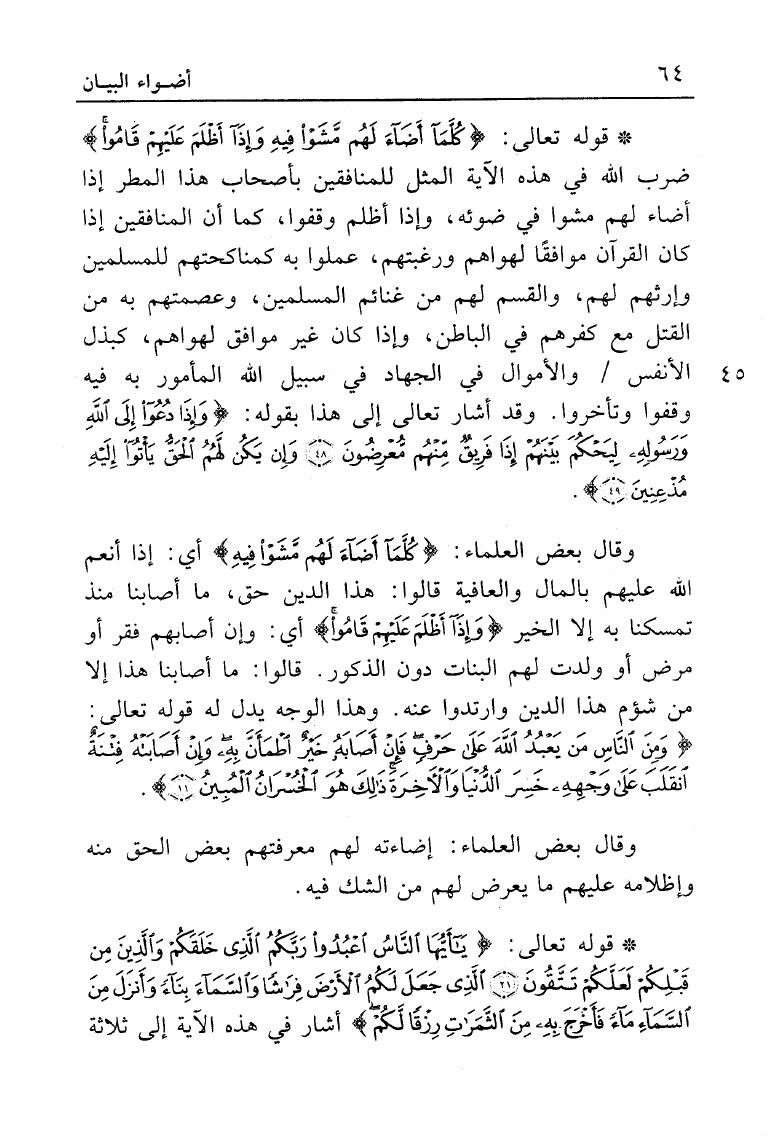 ٦٤ أضواء البيان
* قوله تعالى: ﴿كُلَّمَآ أَضَآءَ لَهُم مَّشَوۡاْ فِيهِ وَإِذَآ أَظۡلَمَ عَلَيۡهِمۡ قَامُواْۚ﴾
ضرب الله في هذه الآية المثل للمنافقين بأصحاب هذا المطر إذا
أضاء لهم مشوا في ضوئه، وإذا أظلم وقفوا، كما أن المنافقين إذا
كان القرآن موافقًا لهواهم ورغبتهم، عملوا به كمناكحتهم للمسلمين
وإرثهم لهم، والقسم لهم من غنائم المسلمين، وعصمتهم به من
القتل مع كفرهم في الباطن، وإذا كان غير موافق لهواهم، كبذل
٤٥ الأنفس / والأموال في الجهاد في سبيل الله المأمور به فيه
وقفوا وتأخروا. وقد أشار تعالى إلى هذا بقوله: ﴿وَإِذَا دُعُوٓاْ إِلَى ٱللَّهِ
وَرَسُولِهِۦ لِيَحۡكُمَ بَيۡنَهُمۡ إِذَا فَرِيقٞ مِّنۡهُم مُّعۡرِضُونَ ٤٨ وَإِن يَكُن لَّهُمُ ٱلۡحَقُّ يَأۡتُوٓاْ إِلَيۡهِ
مُذۡعِنِينَ ٤٩﴾.
وقال بعض العلماء: ﴿كُلَّمَآ أَضَآءَ لَهُم مَّشَوۡاْ فِيهِ﴾ أي: إذا أنعم
الله عليهم بالمال والعافية قالوا: هذا الدين حق، ما أصابنا منذ
تمسكنا به إلا الخير ﴿وَإِذَآ أَظۡلَمَ عَلَيۡهِمۡ قَامُواْۚ﴾ أي: وإن أصابهم فقر أو
مرض أو ولدت لهم البنات دون الذكور. قالوا: ما أصابنا هذا إلا
من شؤم هذا الدين وارتدوا عنه. وهذا الوجه يدل له قوله تعالى:
﴿وَمِنَ ٱلنَّاسِ مَن يَعۡبُدُ ٱللَّهَ عَلَىٰ حَرۡفٖۖ فَإِنۡ أَصَابَهُۥ خَيۡرٌ ٱطۡمَأَنَّ بِهِۦۖ وَإِنۡ أَصَابَتۡهُ فِتۡنَةٌ
ٱنقَلَبَ عَلَىٰ وَجۡهِهِۦ خَسِرَ ٱلدُّنۡيَا وَٱلۡأٓخِرَةَۚ ذَٰلِكَ هُوَ ٱلۡخُسۡرَانُ ٱلۡمُبِينُ ١١﴾.
وقال بعض العلماء: إضاءته لهم معرفتهم بعض الحق منه
وإظلامه عليهم ما يعرض لهم من الشك فيه.
* قوله تعالى: ﴿يَٰٓأَيُّهَا ٱلنَّاسُ ٱعۡبُدُواْ رَبَّكُمُ ٱلَّذِي خَلَقَكُمۡ وَٱلَّذِينَ مِن
قَبۡلِكُمۡ لَعَلَّكُمۡ تَتَّقُونَ ٢١ ٱلَّذِي جَعَلَ لَكُمُ ٱلۡأَرۡضَ فِرَٰشٗا وَٱلسَّمَآءَ بِنَآءٗ وَأَنزَلَ مِنَ
ٱلسَّمَآءِ مَآءٗ فَأَخۡرَجَ بِهِۦ مِنَ ٱلثَّمَرَٰتِ رِزۡقٗا لَّكُمۡۖ﴾ أشار في هذه الآية إلى ثلاثة